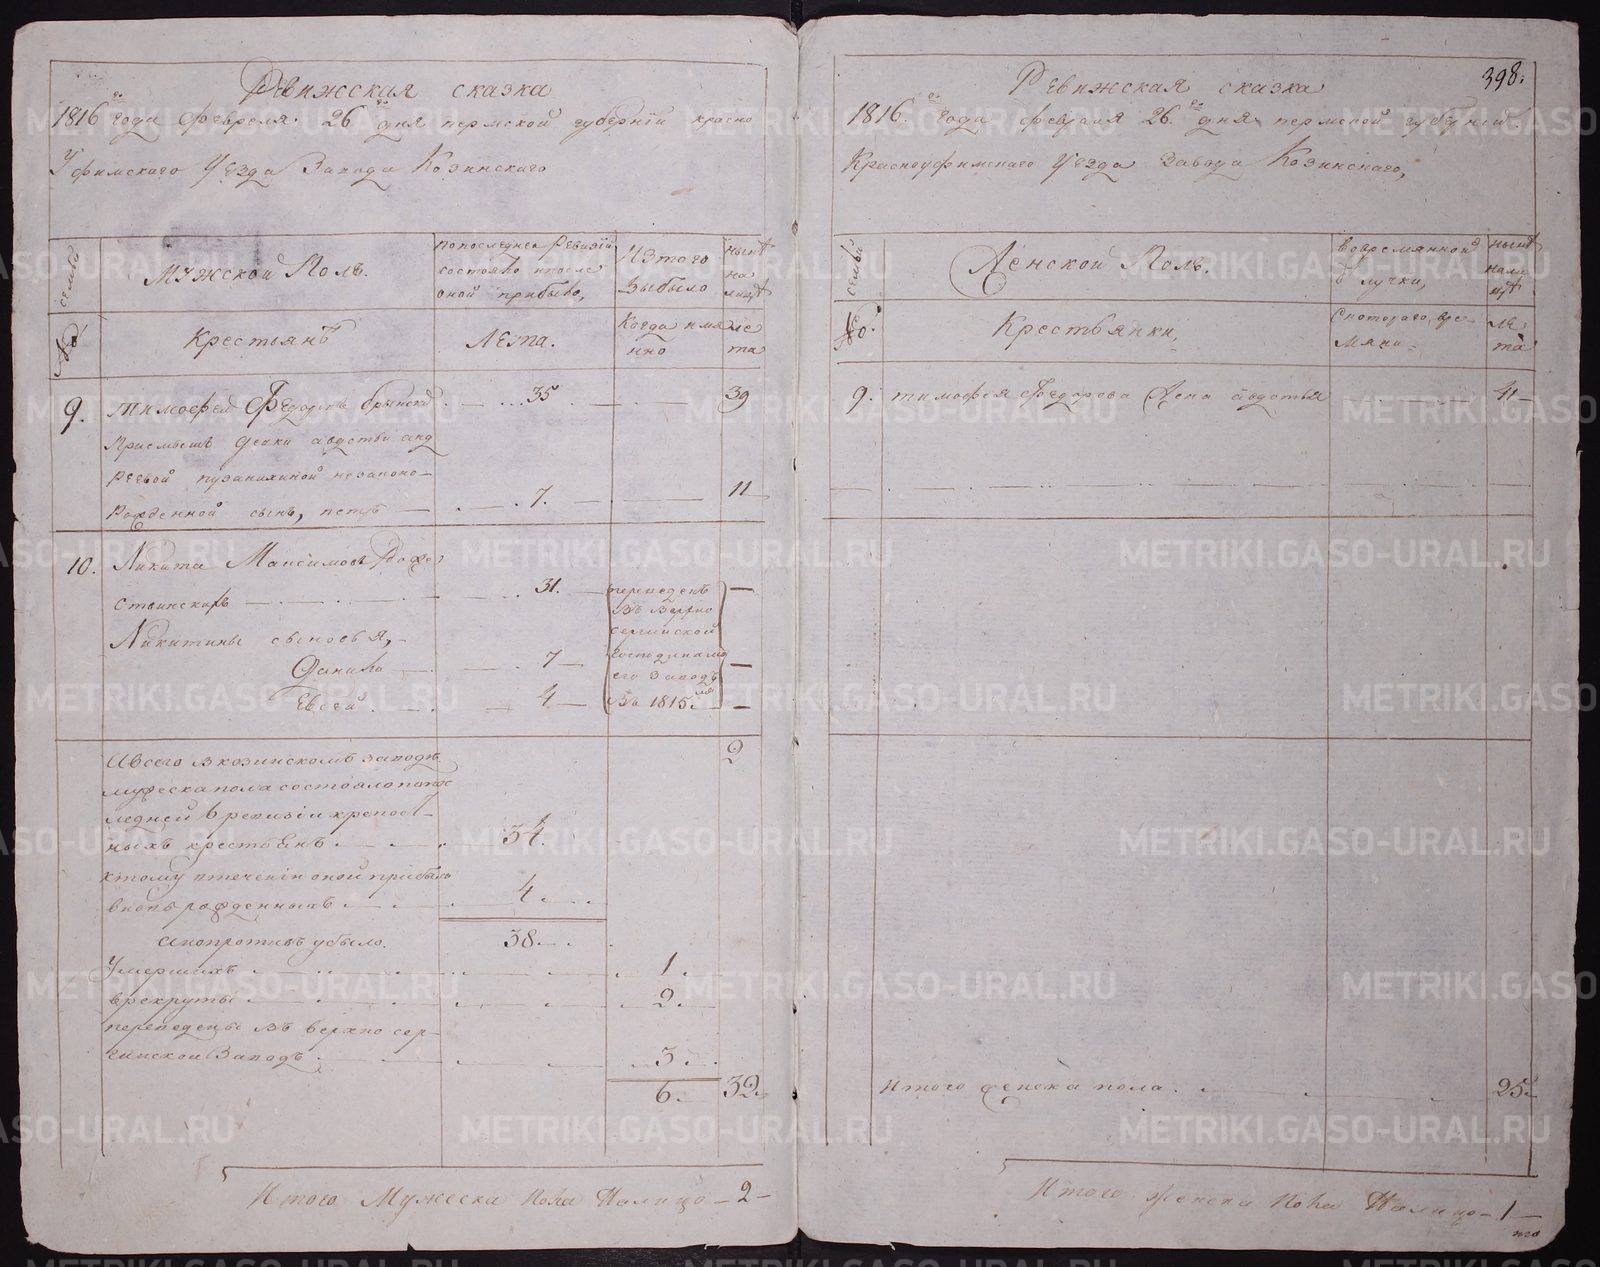 Ревижская сказка
1816го года Февреля 26го дня пермской губернiи красно
Уфимскаго Уезда Завода Козинскаго
№ семьи
Мужской Полъ.
попоследней Ревизiи
состояло ипосле
оной прибыло,
Изтого
Выбыло
ныне
на
лицѣ
Крестьянъ
Лета.
Когда имя
нно
ле
та
9. тимофей Федоровъ брынски 35 39
Приемышъ девки авдотьи анд
реевой пузанихиной незаконо-
рожденной сынъ, петръ 7. 11
10. Никита Максимовъ Роже
ственскихъ 31.
Никитины сыновья,
Данило 7
Евсей 4
переведенъ
въ Верхно
сергинской
господина мо
его заводъ
Въ 1815мъ
2
Авсего вкозинскомъ заводѣ
мужеска пола состояло попос
ледней ревизiи крепост-
ныхъ крестьянъ 34.
ктому втеченiи оной прибыло
вновь рожденныхъ 4
анопротивъ убыло. 38
Умершихъ 1
врекруты 2
переведены въ верхно сер-
гинской Заводъ 3
6. 32
Итого Мужеска пола Налицо - 2 -
398.
Ревижская сказка
1816го года февраля 26го дня пермской губернiи.
Красноуфимскаго Уезда Завода Козинскаго,
№ семьи
Женской Полъ.
Вовремянной
отлучки,
ныне
нали
цѣ
Крестьянки,
Скотораго вре
мяни
ле
та
9. тимофея Федорова Жена авдотья 41
Итого женска пола. 25
Итого женска пола Налицо - 1 -